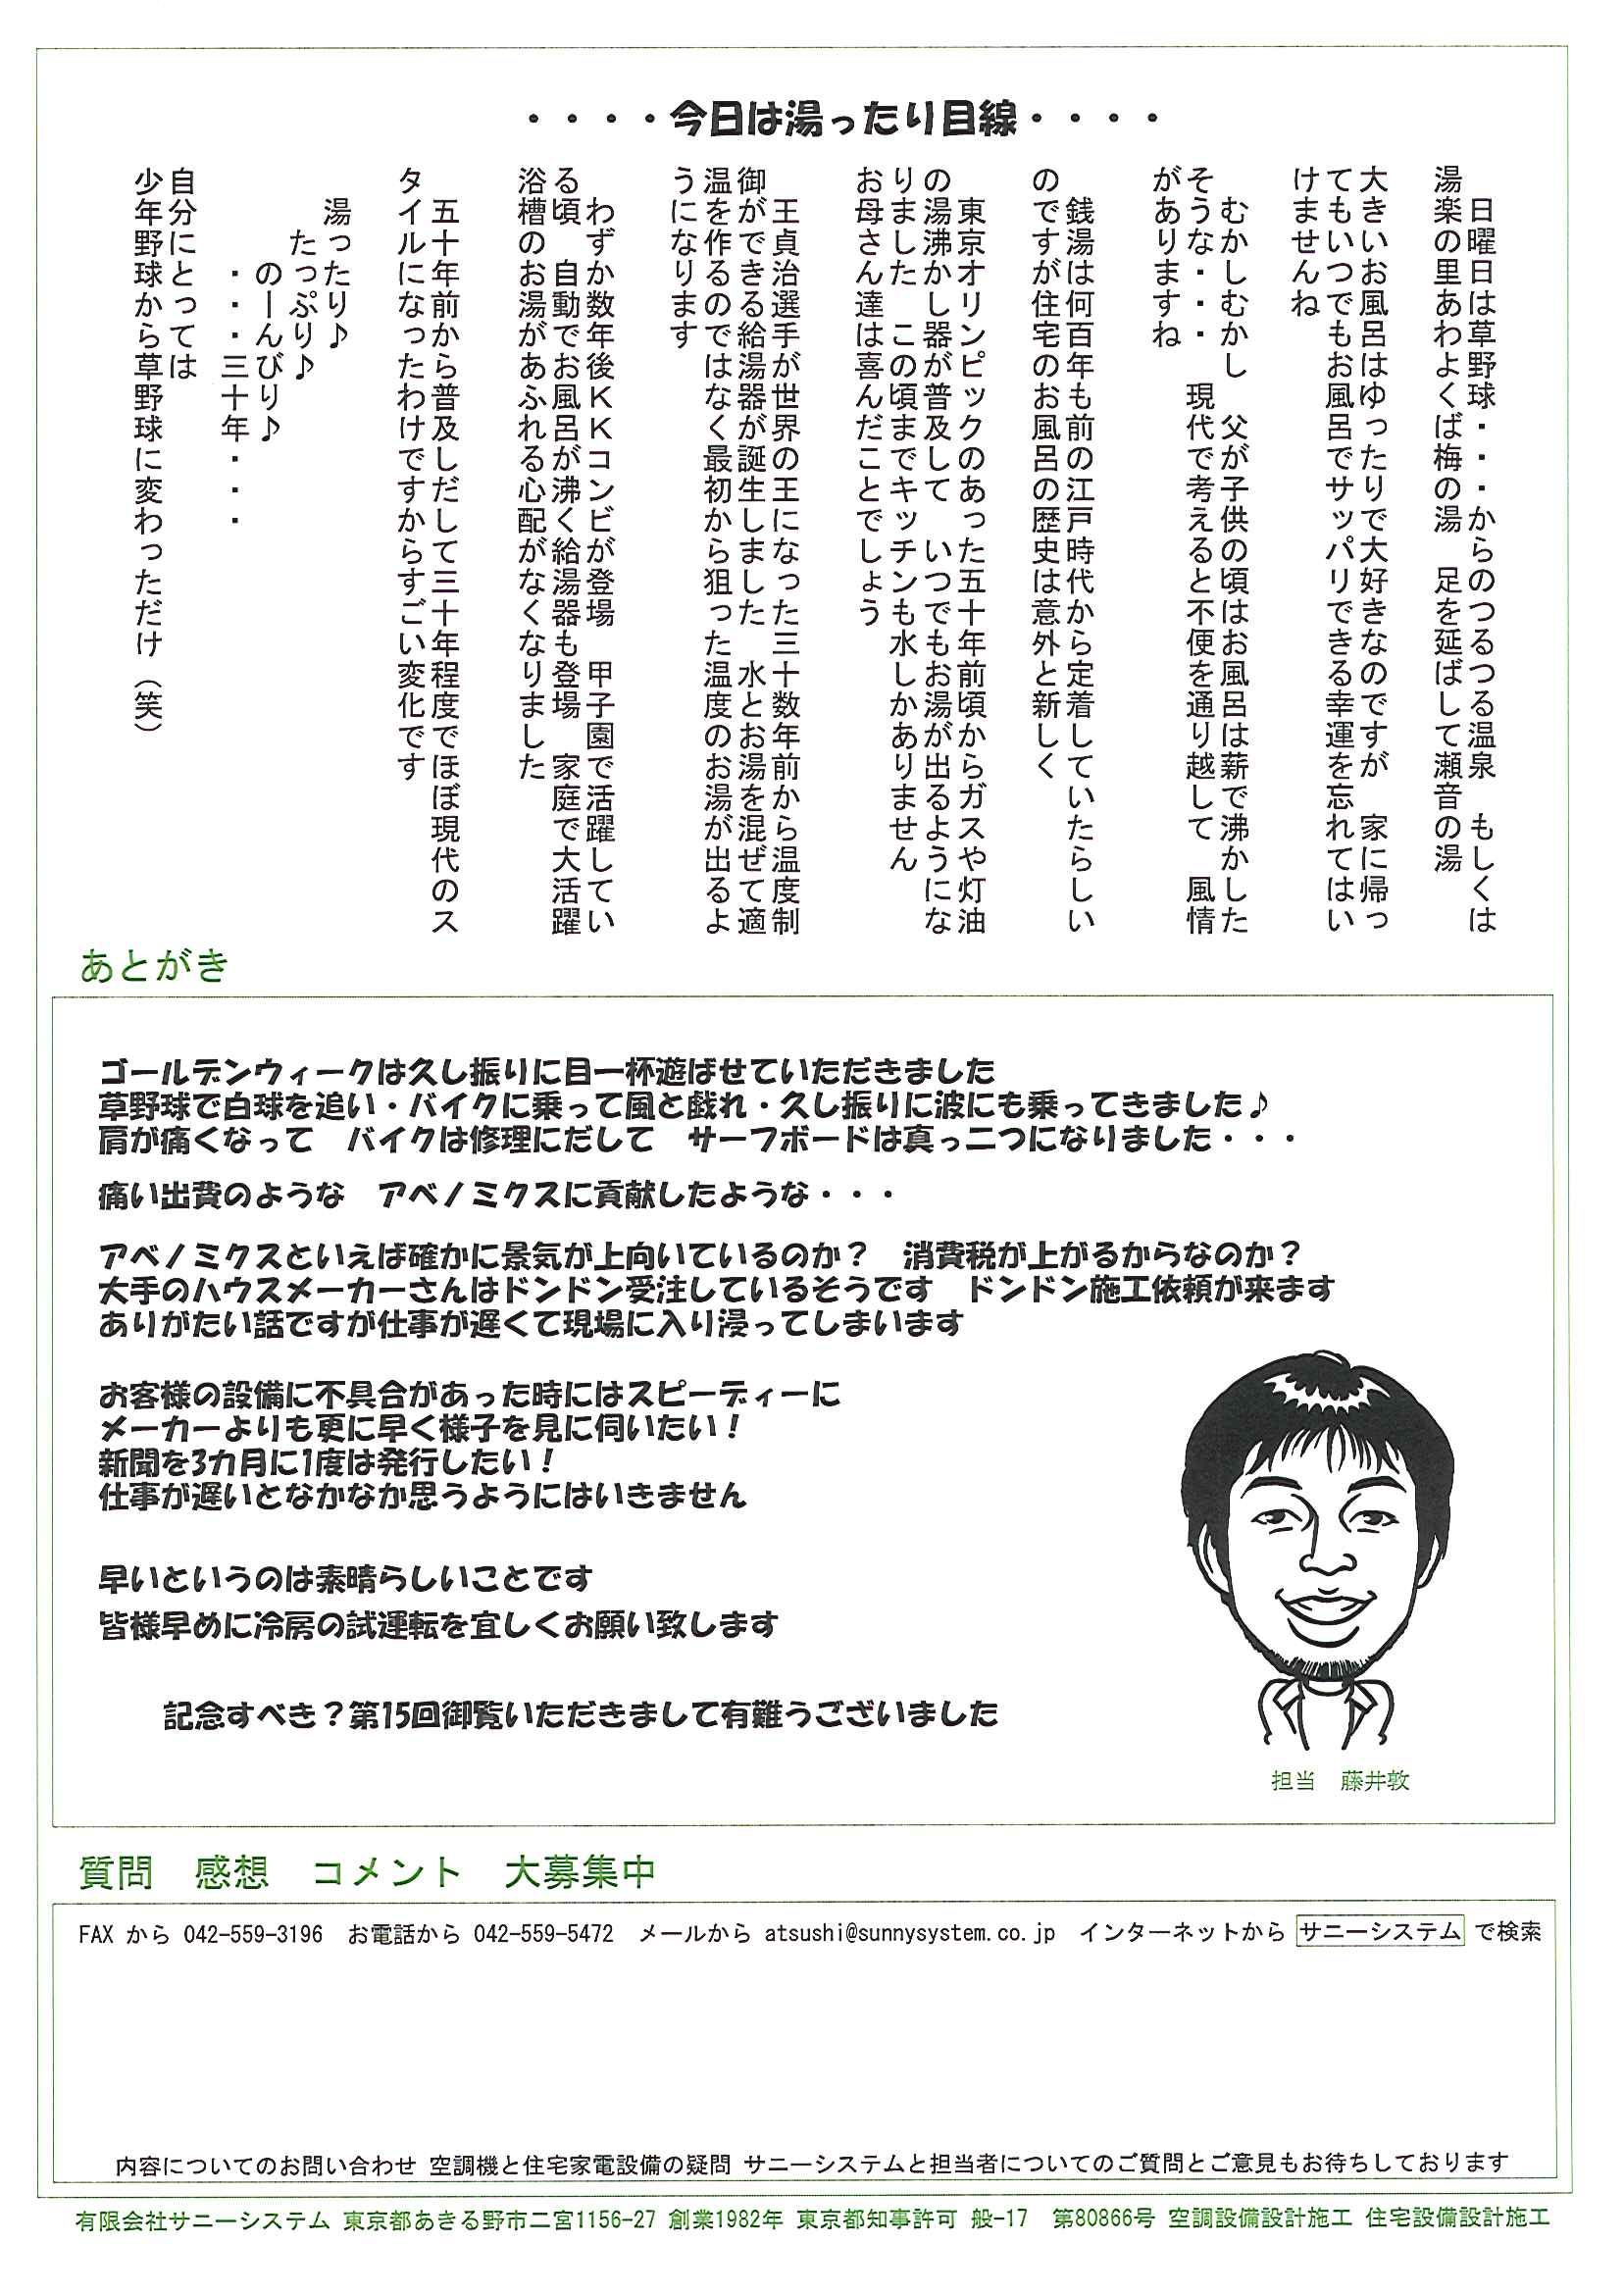 ・・・・今日は湯ったり目線・・・・
日曜日は草野球・・・からのつるつる温泉　もしくは
湯楽の里あわよくば梅の湯　足を延ばして瀬音の湯
大きいお風呂はゆったりで大好きなのですが　家に帰っ
てもいつでもお風呂でサッパリできる幸運を忘れてはい
けませんね
むかしむかし　父が子供の頃はお風呂は薪で沸かした
そうな・・・　現代で考えると不便を通り越して　風情
がありますね
銭湯は何百年も前の江戸時代から定着していたらしい
のですが住宅のお風呂の歴史は意外と新しく
東京オリンピックのあった五十年前頃からガスや灯油
の湯沸かし器が普及して　いつでもお湯が出るようにな
りました　この頃までキッチンも水しかありません
お母さん達は喜んだことでしょう
王貞治選手が世界の王になった三十数年前から温度制
御ができる給湯器が誕生しました　水とお湯を混ぜて適
温を作るのではなく最初から狙った温度のお湯が出るよ
うになります
わずか数年後ＫＫコンビが登場　甲子園で活躍してい
る頃　自動でお風呂が沸く給湯器も登場　家庭で大活躍
浴槽のお湯があふれる心配がなくなりました
五十年前から普及しだして三十年程度でほぼ現代のス
タイルになったわけですからすごい変化です
湯ったり♪
たっぷり♪
のーんびり♪
・・・三十年・・・
自分にとっては
少年野球から草野球に変わっただけ（笑）
あとがき
ゴールデンウィークは久し振りに目一杯遊ばせていただきました
草野球で白球を追い・バイクに乗って風と戯れ・久し振りに波にも乗ってきました♪
肩が痛くなって　バイクは修理にだして　サーフボードは真っ二つになりました・・・
痛い出費のような　アベノミクスに貢献したような・・・
アベノミクスといえば確かに景気が上向いているのか？　消費税が上がるからなのか？
大手のハウスメーカーさんはドンドン受注しているそうです　ドンドン施工依頼が来ます
ありがたい話ですが仕事が遅くて現場に入り浸ってしまいます
お客様の設備に不具合があった時にはスピーディーに
メーカーよりも更に早く様子を見に伺いたい！
新聞を3カ月に1度は発行したい！
仕事が遅いとなかなか思うようにはいきません
早いというのは素晴らしいことです
皆様早めに冷房の試運転を宜しくお願い致します
記念すべき？第15回御覧いただきまして有難うございました
担当　藤井敦
質問　感想　コメント　大募集中
FAX から 042-559-3196　お電話から 042-559-5472　メールから atsushi@sunnysystem.co.jp　インターネットから サニーシステム で検索
内容についてのお問い合わせ 空調機と住宅家電設備の疑問 サニーシステムと担当者についてのご質問とご意見もお待ちしております
有限会社サニーシステム 東京都あきる野市二宮1156-27 創業1982年 東京都知事許可 般-17　第80866号 空調設備設計施工 住宅設備設計施工